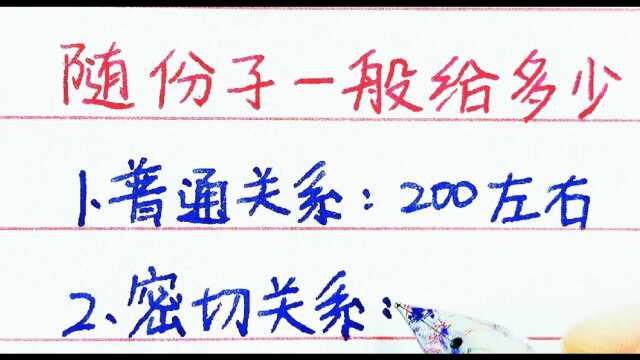 随份子一般给多少
1.普通关系：200左右
2、密切关系：